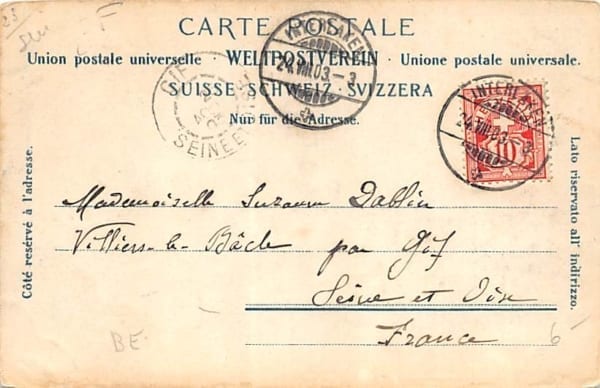 23
F
CARTE POSTALE
Union postale universelle · WELTPOSTVEREIN · Unione postale universale.
SUISSE · SCHWEIZ · SVIZZERA
Nur für die Adresse.
INTERLAKEN
24.VIII.03.-3
SEINE ET
INTERLAKEN
24.VIII.03.-3
10
Côté resérvé à l'adresse.
Lato riservato all' indirizzo.
Mademoiselle Suzanne Dablin
Villiers-le-Bâcle par Gif
Seine et Oise
France
BE
6-